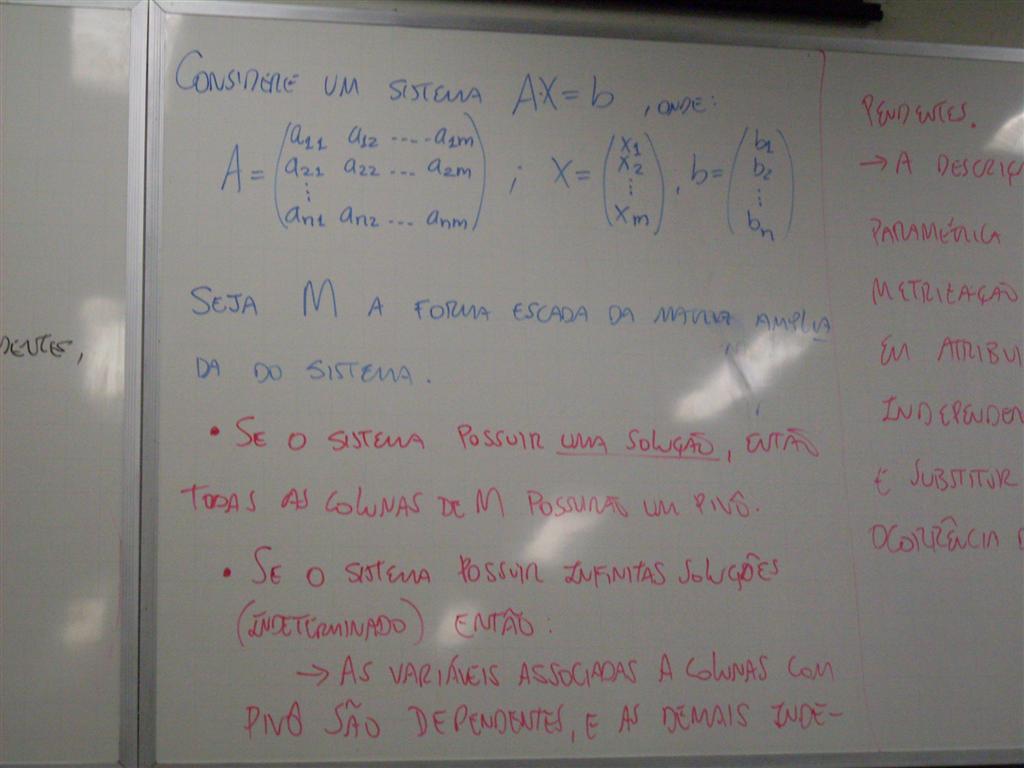 CONSIDERE UM SISTEMA A·X = b , ONDE:
A = (a11 a12 ..... a1m
a21 a22 ... a2m
⋮
an1 an2 ... anm) ; X = (x1
x2
⋮
xm) , b = (b1
b2
⋮
bn)
SEJA M A FORMA ESCADA DA MATRIZ AMPLIA
DA DO SISTEMA.
• SE O SISTEMA POSSUIR UMA SOLUÇÃO, ENTÃO
TODAS AS COLUNAS DE M POSSUIRÃO UM PIVÔ.
• SE O SISTEMA POSSUIR INFINITAS SOLUÇÕES
(INDETERMINADO) ENTÃO:
→ AS VARIÁVEIS ASSOCIADAS A COLUNAS COM
PIVÔ SÃO DEPENDENTES, E AS DEMAIS INDE-
PENDENTES.
→ A DESCRIÇ
PARAMÉRICA
METRIZAÇÃO
EM ATRIBUI
INDEPENDEN
E SUBSTITUR
OCORRÊNCIA
DENTES,